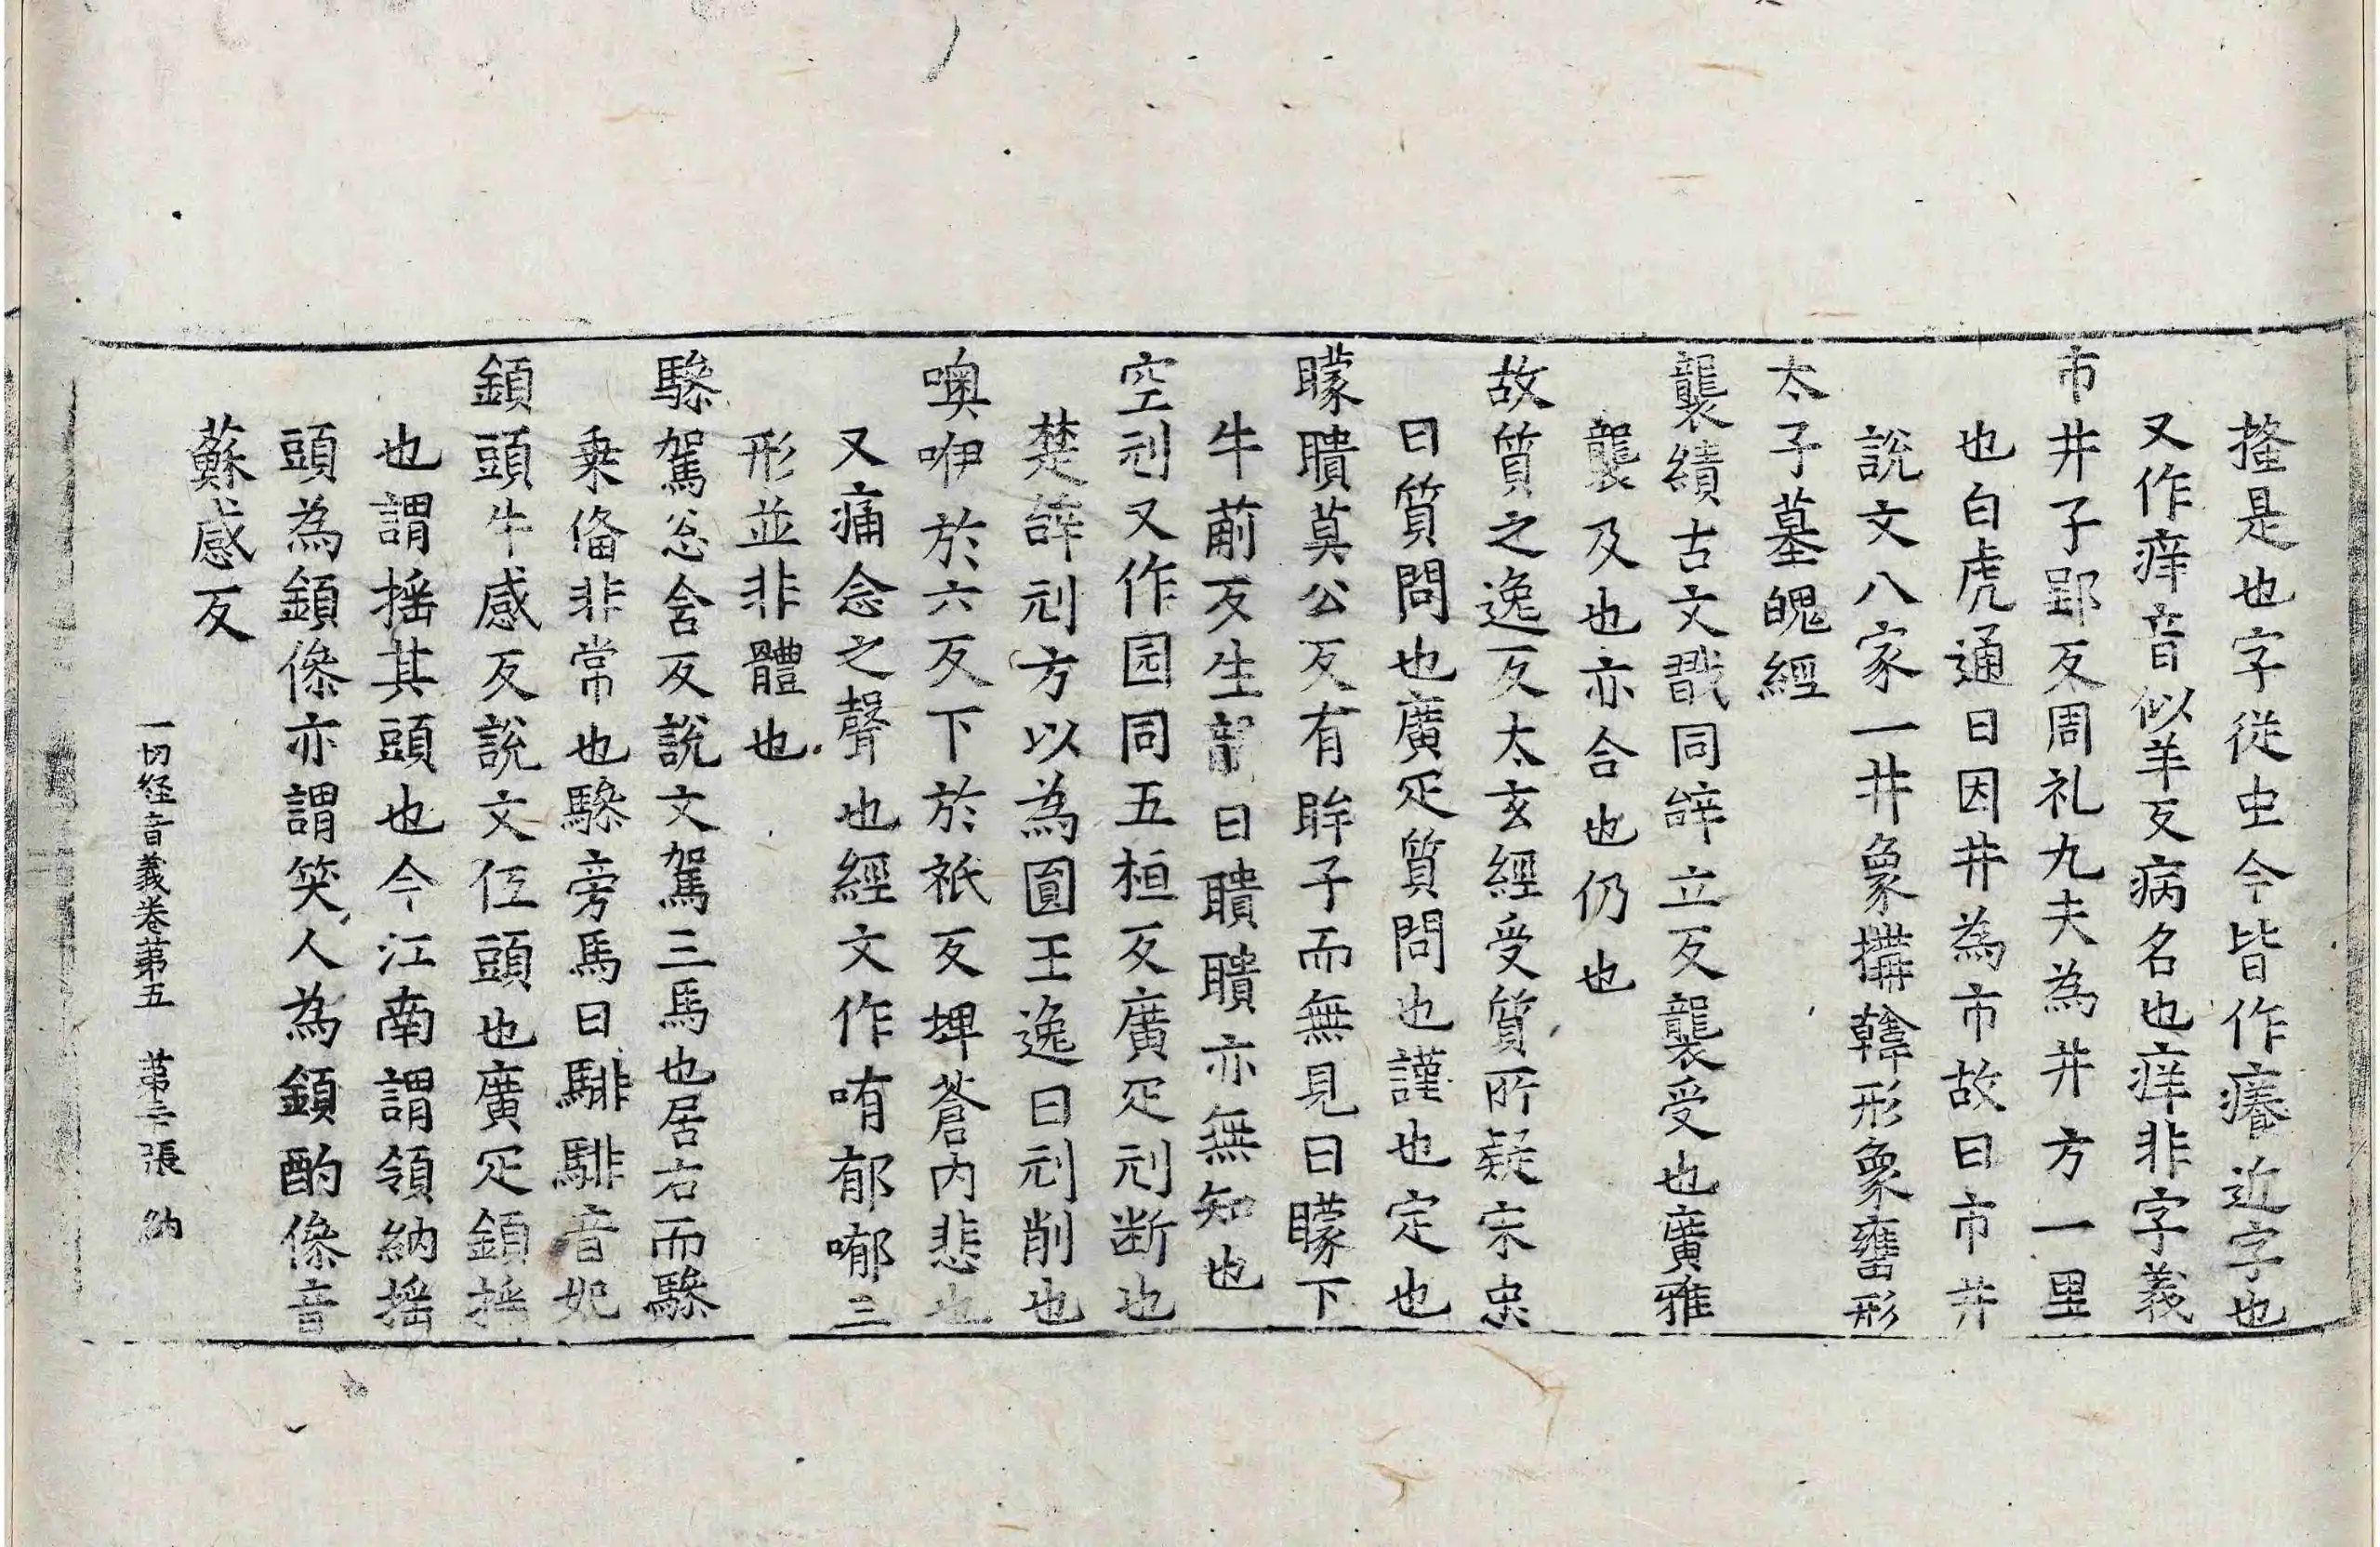 搔是也字從虫今皆作癢近字也
又作痒音似羊反病名也痒非字義
市井子郢反周礼九夫為井方一里
也白虎通曰因井為市故曰市井
說文八家一井象構韓形象罋形
太子墓魄經
襲績古文戠同辝立反襲受也廣雅
襲及也亦合也仍也
故質之逸反太玄經受質所疑宋忠
曰質問也廣疋質問也謹也定也
矇聵莫公反有眸子而無見曰矇下
牛萷反生聾曰聵聵亦無知也
空刓又作园同五桓反廣疋刓断也
楚辝刓方以為圎王逸曰刓削也
噢咿於六反下於祇反埤蒼内悲也
又痛念之聲也經文作哊郁唧三
形並非體也
驂駕忩含反說文駕三馬也居右而驂
乗俻非常也驂旁馬曰騑騑音妃
顉頭牛感反說文仾頭也廣疋顉揺
也謂揺其頭也今江南謂領納揺
頭為顉傪亦謂笑人為顉酌傪音
蘇感反
一切経音義卷苐五 苐二張 納